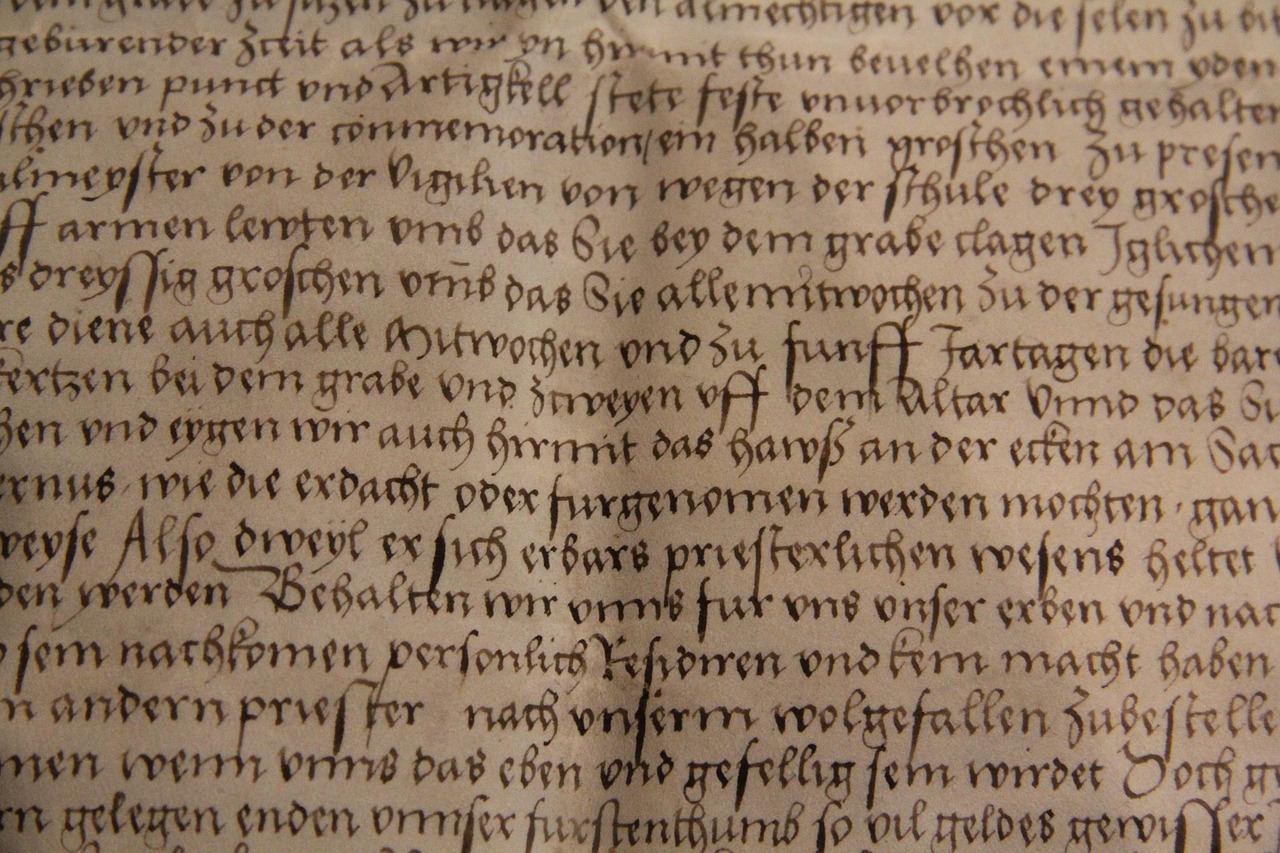 grabe zu sitzen zu den almechtigen vor die selen zu
geburender zceit als wir yn hirmit thun bevelhen einem yden
hrieben punct und Artigkell stete feste unvorbrochlich gehalten
schen und zu der commemoration, ein halben groschen zu presen
ulmeyster von der Vigilien von wegen der schule drey grosche
ff armen lewten umb das Sie bey dem grabe clagen Iglichen
s dreyssig groschen vm̄b das Sie alle mitwochen zu der gesungen
re diene auch alle Mitwochen und zu funff Jartagen die bar
kertzen bei dem grabe und zcweyen uff dem Altar Unnd das Si
hen und eygen wir auch hirmit das hawß an der ecken am Sac
ernus wie die erdacht oder furgenomen werden mochten gan
weyse Also dweyl er sich erbars priesterlichen wesens heltet
den werden Behalten wir unns fur uns unser erben und nac
sein nachkomen personlich Residiren und kein macht haben
n andern priester nach unserm wolgefallen zubestelle
men wenn unns das eben und gefellig sein wirdet Doch ge
rn gelegen enden unnser furstenthumb so vil geldes gewisser